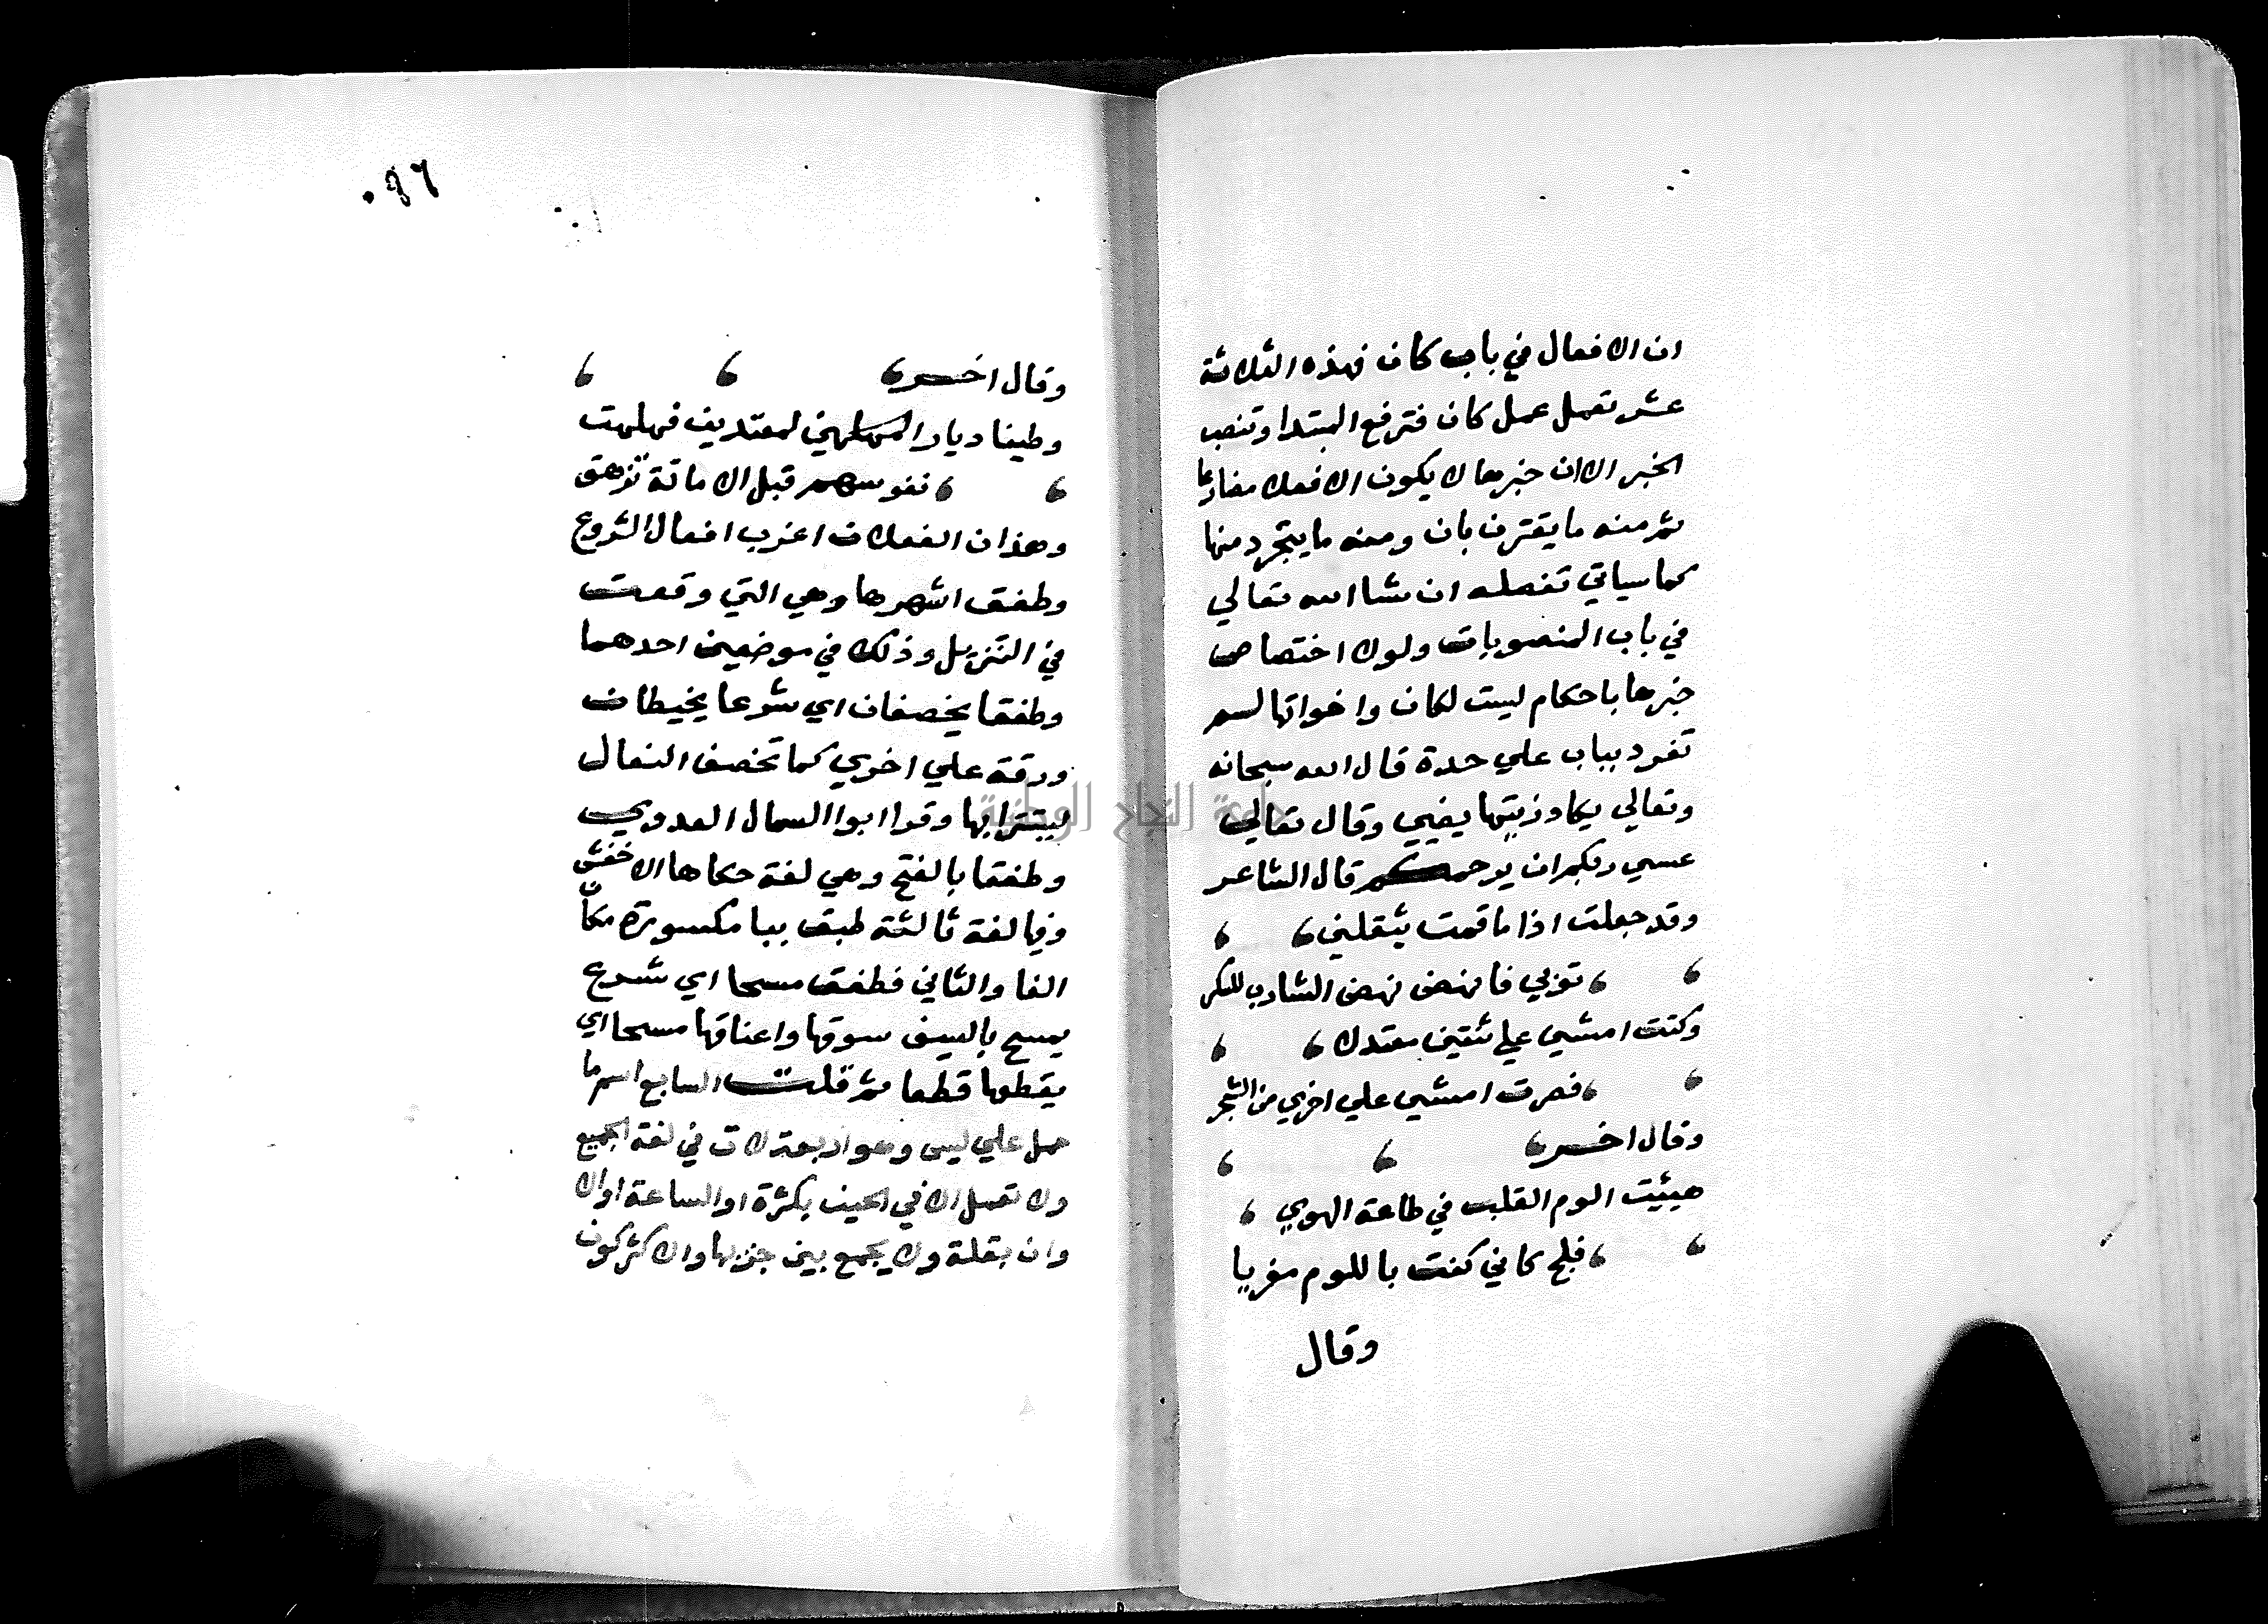 ان الافعال في باب كان فهذه الثلاثة
عشر تعمل عمل كان فترفع المبتدا وتنصب
الخبر الا ان خبرها لا يكون الا فعلا مضارعا
ثم منه ما يقترن بان ومنه ما يتجرد منها
كما سياتي تفصله ان شا الله تعالي
في باب المنصوبات ولولا اختصاص
خبرها باحكام ليست لكان واخواتها لم
تفرد بباب علي حدة قال الله سبحانه
وتعالي يكاد زيتها يضيي وقال تعالي
عسي ربكم ان يرحمكم قال الشاعر
وقد جعلت اذا ما قمت يثقلني
ثوبي فانهض نهض الشارب السكر
وكنت امشي علي ثنتين معتدلا
فصرت امشي علي اخري من الشجر
وقال اخر
هببت الوم القلب في طاعة الهوي
فلج كاني كنت باللوم مغريا
وقال
٠٤٦
وقال اخر
وطينا ديار المعتدين فهلهلت
نفوسهم قبل الاماتة تزهق
وهذان الفعلان اغرب افعال الشروع
وطفق اشهرها وهي التي وقعت
في التنزيل وذلك في موضعين احدهما
وطفقا يخصفان اي شرعا يخيطان
ورقة علي اخري كما تخصف النعال
ليستترا بها وقرا ابوا السمال العدوي
وطفقا بالفتح وهي لغة حكاها الاخفش
وفيها لغة ثالثة طبق ببا مكسورة مكان
الفا والثاني فطفق مسحا اي شرع
يمسح بالسيف سوقها واعناقها مسحا اي
يقطعها قطعا ثم قلت السابع اسم ما
حمل علي ليس وهو اربعة لات في لغة الجميع
ولا تعمل الا في الحين بكثرة او الساعة او الا
وان بقلة ولا يجمع بين جزيها والاكثر كون
جامعة النجاح الوطنية